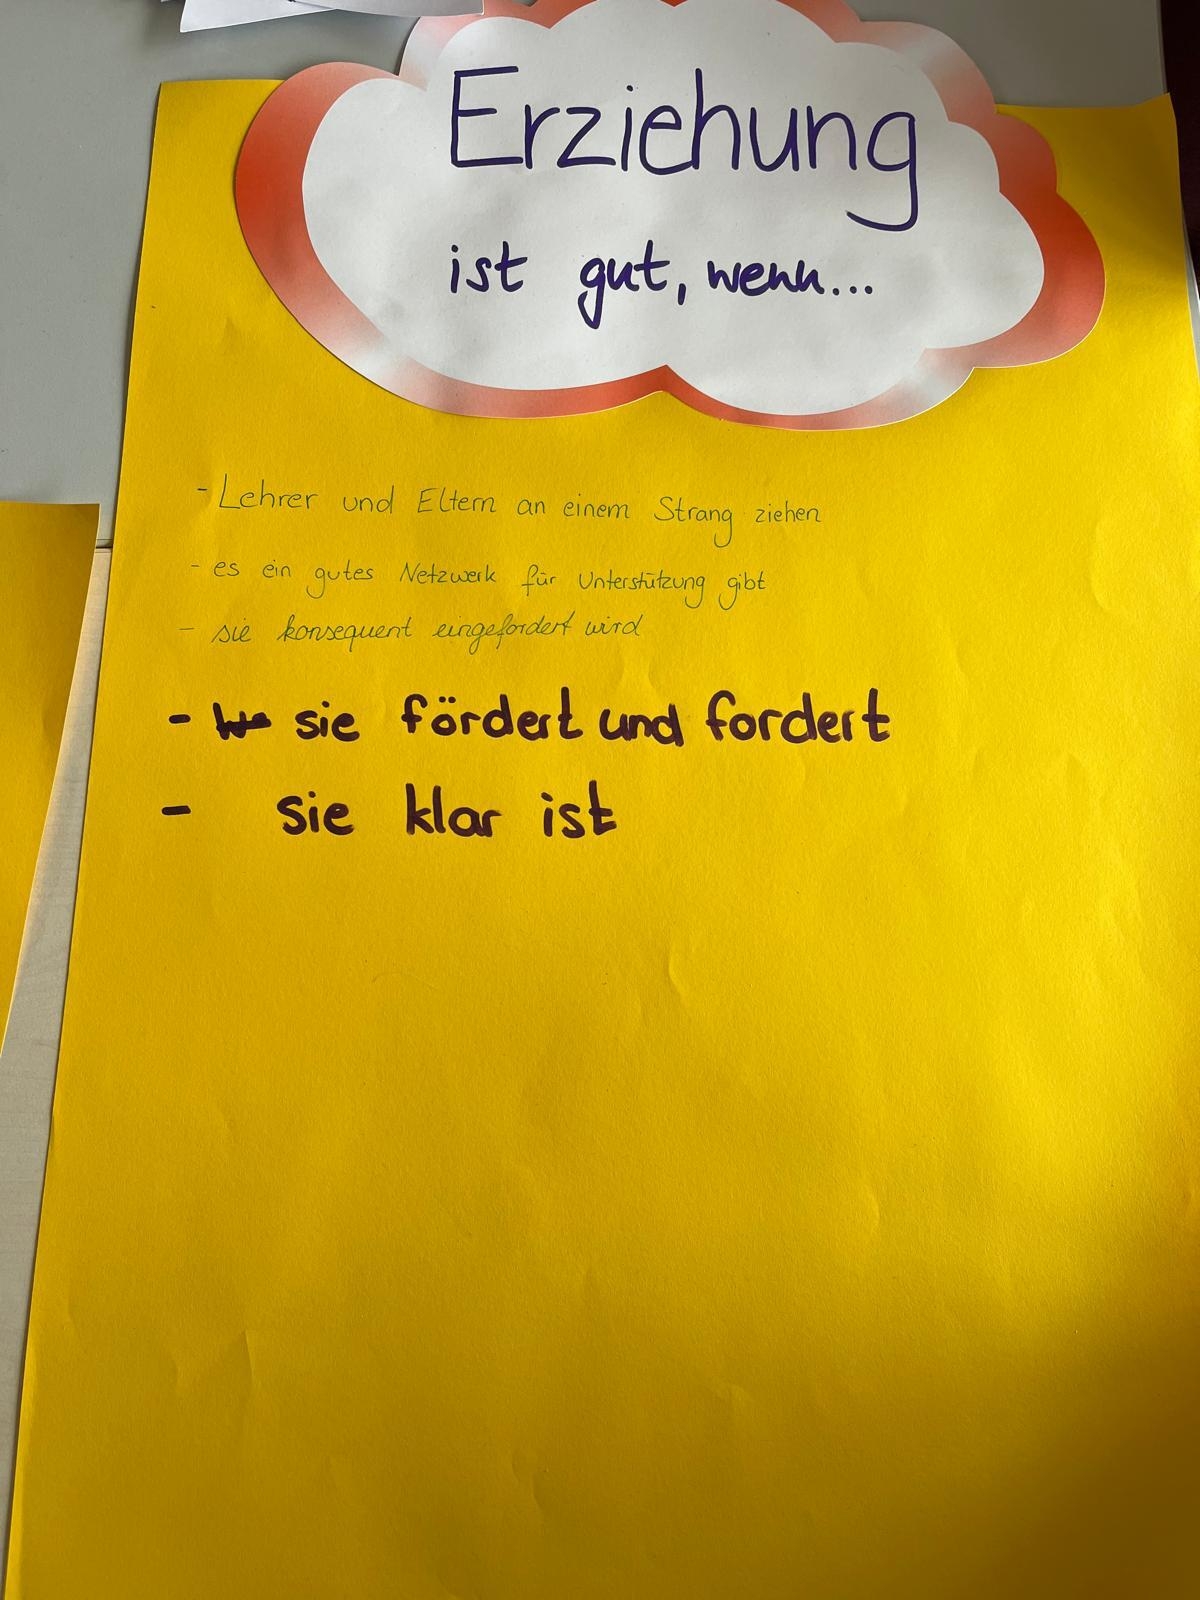 Erziehung
ist gut, wenn...
- Lehrer und Eltern an einem Strang ziehen
- es ein gutes Netzwerk für Unterstützung gibt
- sie konsequent eingefordert wird
- sie fördert und fordert
- sie klar ist